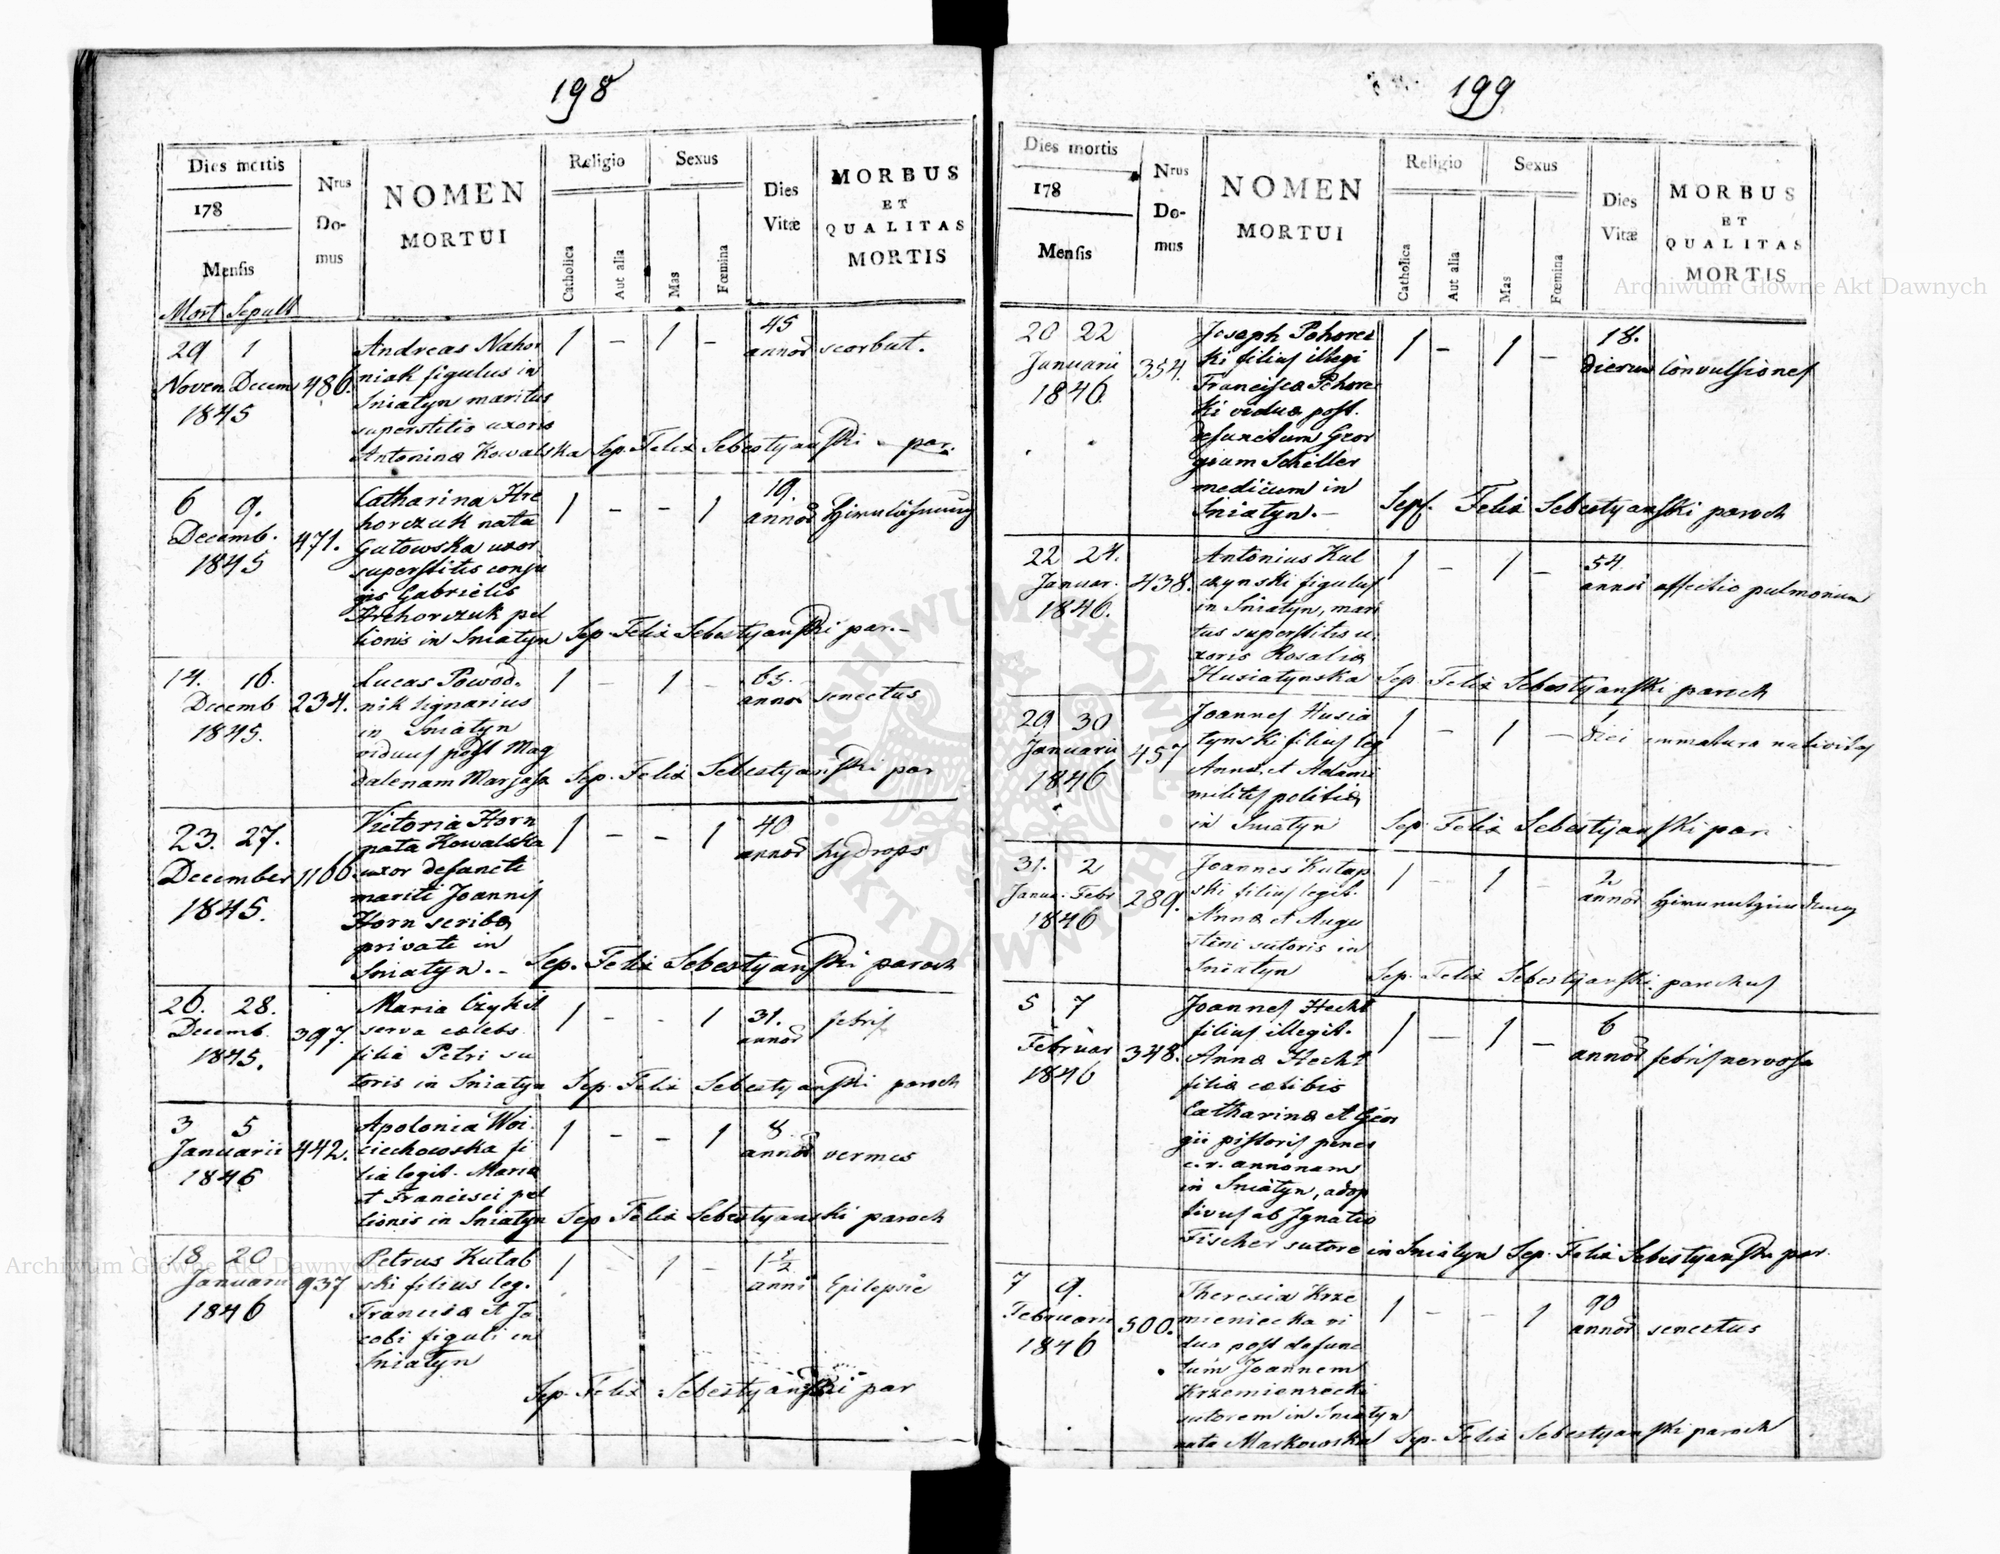 198
Dies mortis
178
Mensis
Mort. Sepult
Nrus
Do-
mus
NOMEN
MORTUI
Religio
Catholica
Aut alia
Sexus
Mas
Fœmina
Dies
Vitæ
MORBUS
ET
QUALITAS
MORTIS
29 1
Novem Decem 486.
1845
Andreas Nahor
niak figulus in
Sniatyn maritus
superstitis uxoris
Antoninæ Kowalska Sep. Felix Sebestyanski par.
1 - 1 -
45
annor scorbut.
6 9.
Decemb. 471.
1845
Catharina Hre
horczuk nata
Gutowska uxor
superstitis conju
gis Gabrielis
Hrehorczuk pel
lionis in Sniatyn Sep. Felix Sebestyanski par.-
1 - - 1
19.
annor
14. 16.
Decemb 234.
1845.
Lucas Powod-
nik lignarius
in Sniatyn
viduus post Mag
dalenam Sep. Felix Sebestyanski par
1 - 1 -
65.
annor senectus
23. 27.
December 1166.
1845.
Victoria Horn
nata Kowalska
uxor defuncti
mariti Joannis
Horn scribæ
privati in
Sniatyn. - Sep. Felix Sebestyanski paroch
1 - - 1
40
annor hydrops
26. 28.
Decemb. 397.
1845.
Maria
serva cœlebs
filia Petri su
toris in Sniatyn Sep. Felix Sebestyanski paroch
1 - - 1
31.
annor febris
3 5
Januarii 442.
1846
Apolonia Woi
ciechowska fi
lia legit. Mariæ
et Francisci pel
lionis in Sniatyn Sep. Felix Sebestyanski paroch
1 - - 1
8
annor vermes
18 20
Januarii 937
1846
Petrus Kutab
ski filius leg.
Franciscæ et Ja
cobi figuli in
Sniatyn
Sep. Felix Sebestyanski par
1 - 1 -
1 1/2
anni Epilepsie
199
Dies mortis
178
Mensis
Nrus
Do-
mus
NOMEN
MORTUI
Religio
Catholica
Aut alia
Sexus
Mas
Fœmina
Dies
Vitæ
MORBUS
ET
QUALITAS
MORTIS
20 22
Januarii 354.
1846.
Joseph Pohorec
ki filius illegi
Franciscæ Pohorec
ki viduæ post.
defunctum Geor
gium Schiller
medicum in
Sniatyn. - Sep. Felix Sebestyanski paroch
1 - 1 -
18.
dierum convulsiones
22 24.
Januar. 438.
1846.
Antonius Kul
czynski figulus
in Sniatyn, mari
tus superstitis u
xoris Rosaliæ
Husiatynska Sep. Felix Sebestyanski paroch
1 - 1 -
54.
annor affectio pulmonum
29 30
Januarii 457
1846
Joannes Husia
tynski filius leg
Annæ et Adami
militis politiæ
in Sniatyn Sep. Felix Sebestyanski par
1 - 1 -
1
diei immatura nativitas
31. 2
Janua. Febr 289.
1846
Joannes Kutap
ski filius legit.
Annæ et Augu
stini sutoris in
Sniatyn Sep. Felix Sebestyanski parochus
1 - 1 -
2
annor
5 7
Februar 348.
1846
Joannes Hecht
filius illegit.
Annæ Hecht
filiæ cœlibis
Catharinæ et Geor
gii pistoris penes
c. r. annonam
in Sniatyn, adop
tivus ab Ignatio
Fischer sutore in Sniatyn Sep. Felix Sebestyanski par.
1 - 1 -
6
annor febris nervosa
7 9.
Februarii 500.
1846
Theresia Krze
mieniecka vi
dua post defunc
tum Joannem
Krzemieniecki
sutorem in Sniatyn
nata Markowska Sep. Felix Sebestyanski paroch
1 - - 1
90
annor senectus
Archiwum Główne Akt Dawnych
Archiwum Główne Akt Dawnych
ARCHIWUM GŁÓWNE AKT DAWNYCH